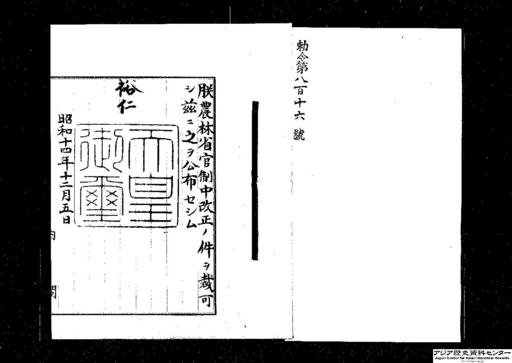 勅令第八百十六號
朕農林省官制中改正ノ件ヲ裁可
シ茲ニ之ヲ公布セシム
裕仁
天皇
御璽
昭和十四年十二月五日
内閣
アジア歴史資料センター
Japan Center for Asian Historical Records